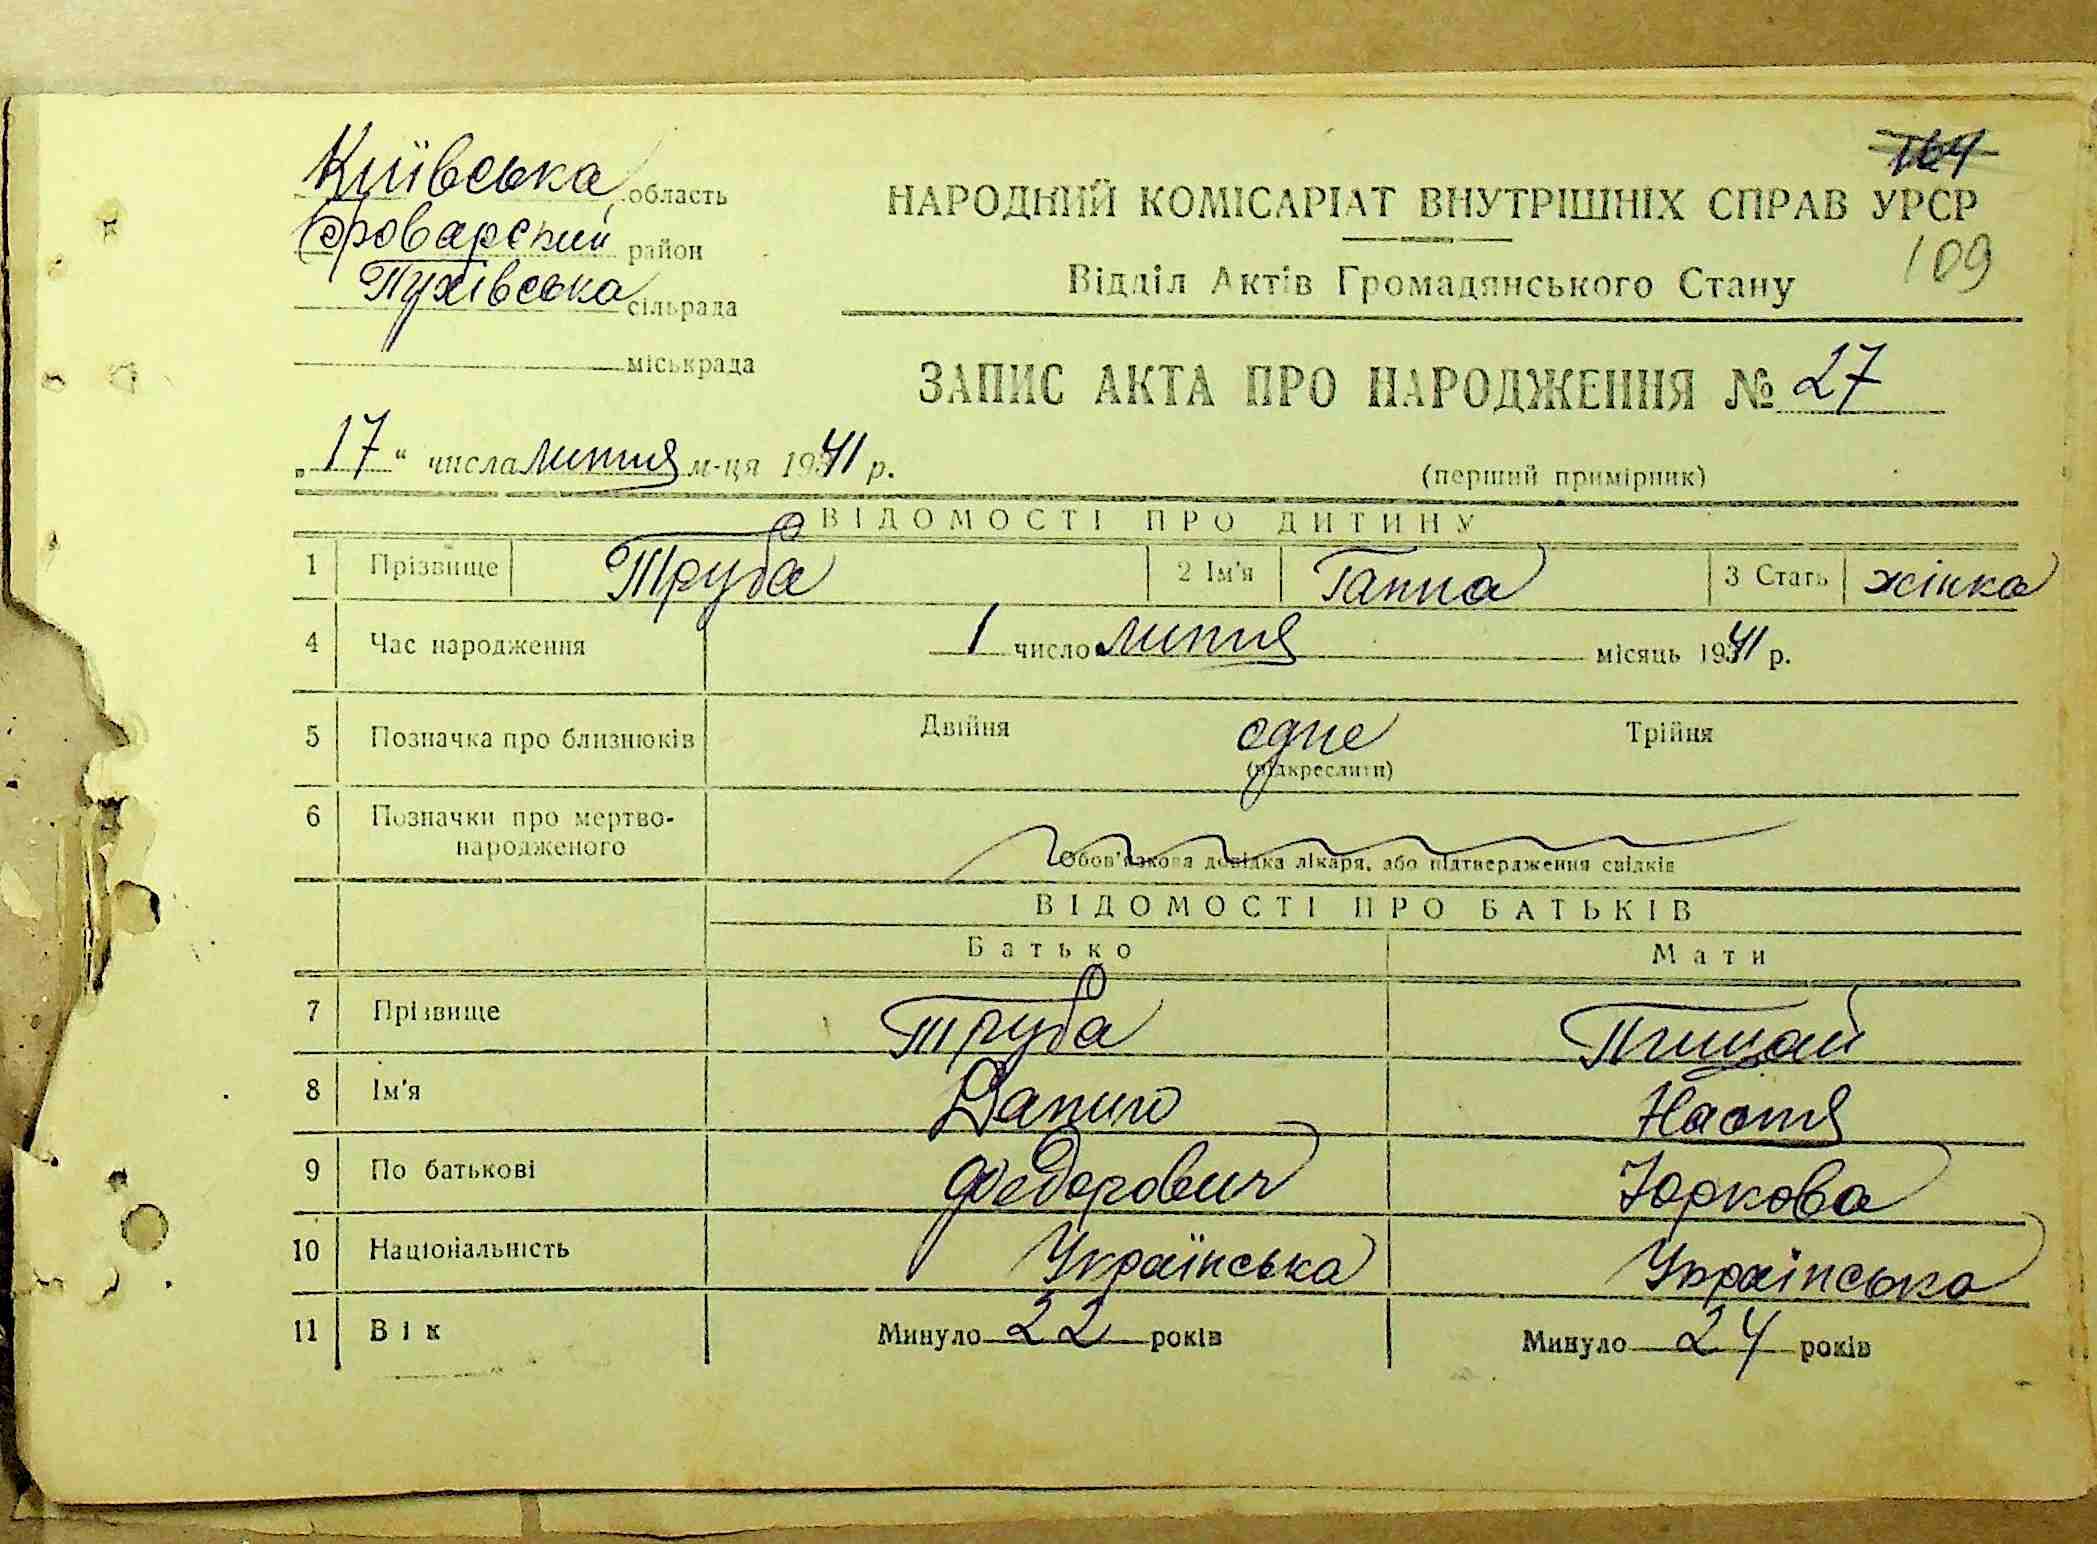 164
Київська область
НАРОДНИЙ КОМІСАРІАТ ВНУТРІШНІХ СПРАВ УРСР
Броварский район
109
Відділ Актів Громадянського Стану
Пухівська сільрада
міськрада
ЗАПИС АКТА ПРО НАРОДЖЕННЯ № 27
„17“ числа липня м-ця 1941 р.
(перший примірник)
ВІДОМОСТІ ПРО ДИТИНУ
1 Прізвище Труба 2 Ім'я Ганна 3 Стать жінка
4 Час народження 1 число липня місяць 1941 р.
5 Позначка про близнюків Двійня одне Трійня
(підкреслити)
6 Позначки про мертво-
народженого
Обов'язкова довідка лікаря, або підтвердження свідків
ВІДОМОСТІ ПРО БАТЬКІВ
Батько Мати
7 Прізвище Труба
8 Ім'я Данило Настя
9 По батькові Федорович Юркова
10 Національність Українська Українська
11 Вік Минуло 22 років Минуло 24 років